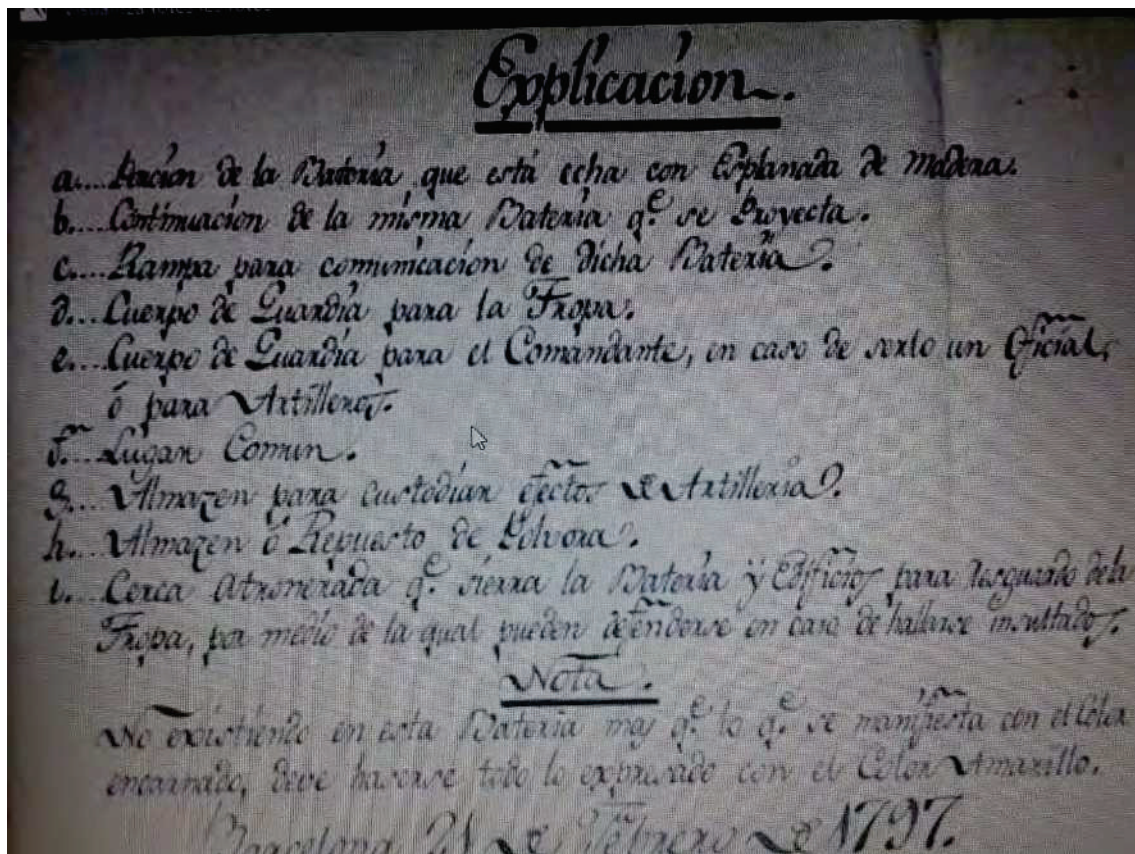 Explicacion.
a... Porcion de la Bateria, que está echa con Explanada de Madera.
b.... Continuacion de la misma Bateria q.e se Proyecta.
c.... Rampa para comunicacion de dicha Bateria.
d... Cuerpo de Guardia para la Tropa.
e... Cuerpo de Guardia para el Comandante, en caso de serlo un Oficial,
ó para Artilleros.
f... Lugar Comun.
g... Almazen para custodiar efectos de Artilleria.
h... Almazen ó Repuesto de Polvora.
i. Cerca Atronerada q.e sierra la Bateria y Edificios para resguardo de la
Tropa, por medio de la qual pueden defenderse en caso de hallarse insultados.
Nota.
No existiendo en esta Bateria mas q.e lo q.e se manifiesta con el Color
encarnado, deve haserse todo lo expresado con el Color Amarillo.
Barcelona 21 de Febrero de 1797.